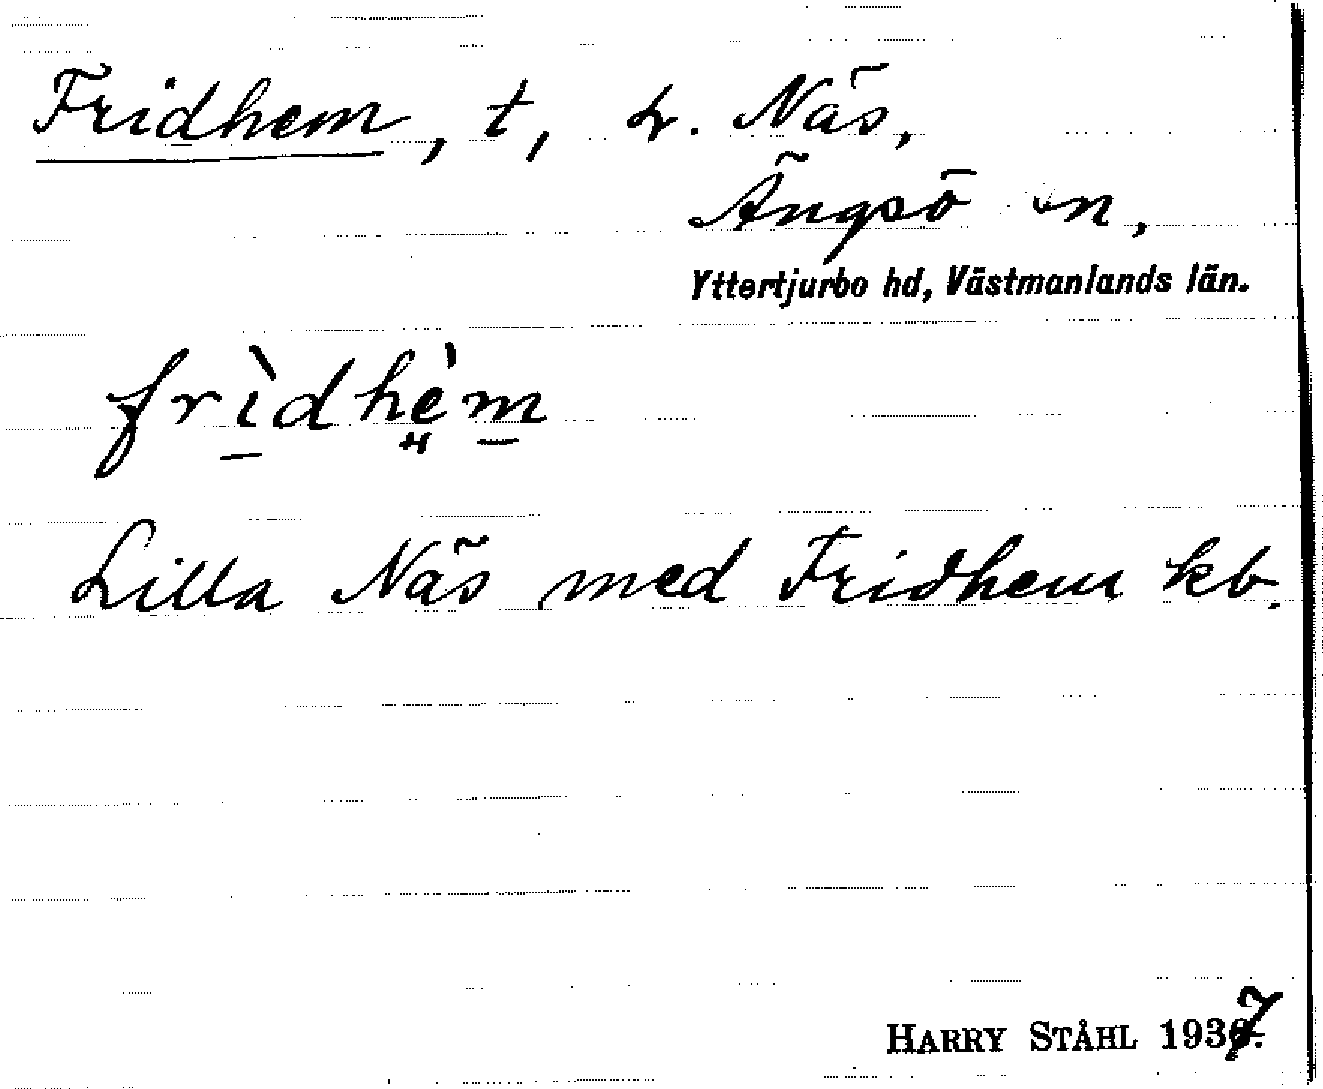 Fridhem, t, L. Näs,
Ängsö sn,
Yttertjurbo hd, Västmanlands län.
frìdhèm
Lilla Näs med Fridhem kb.
HARRY STÅHL 1937.